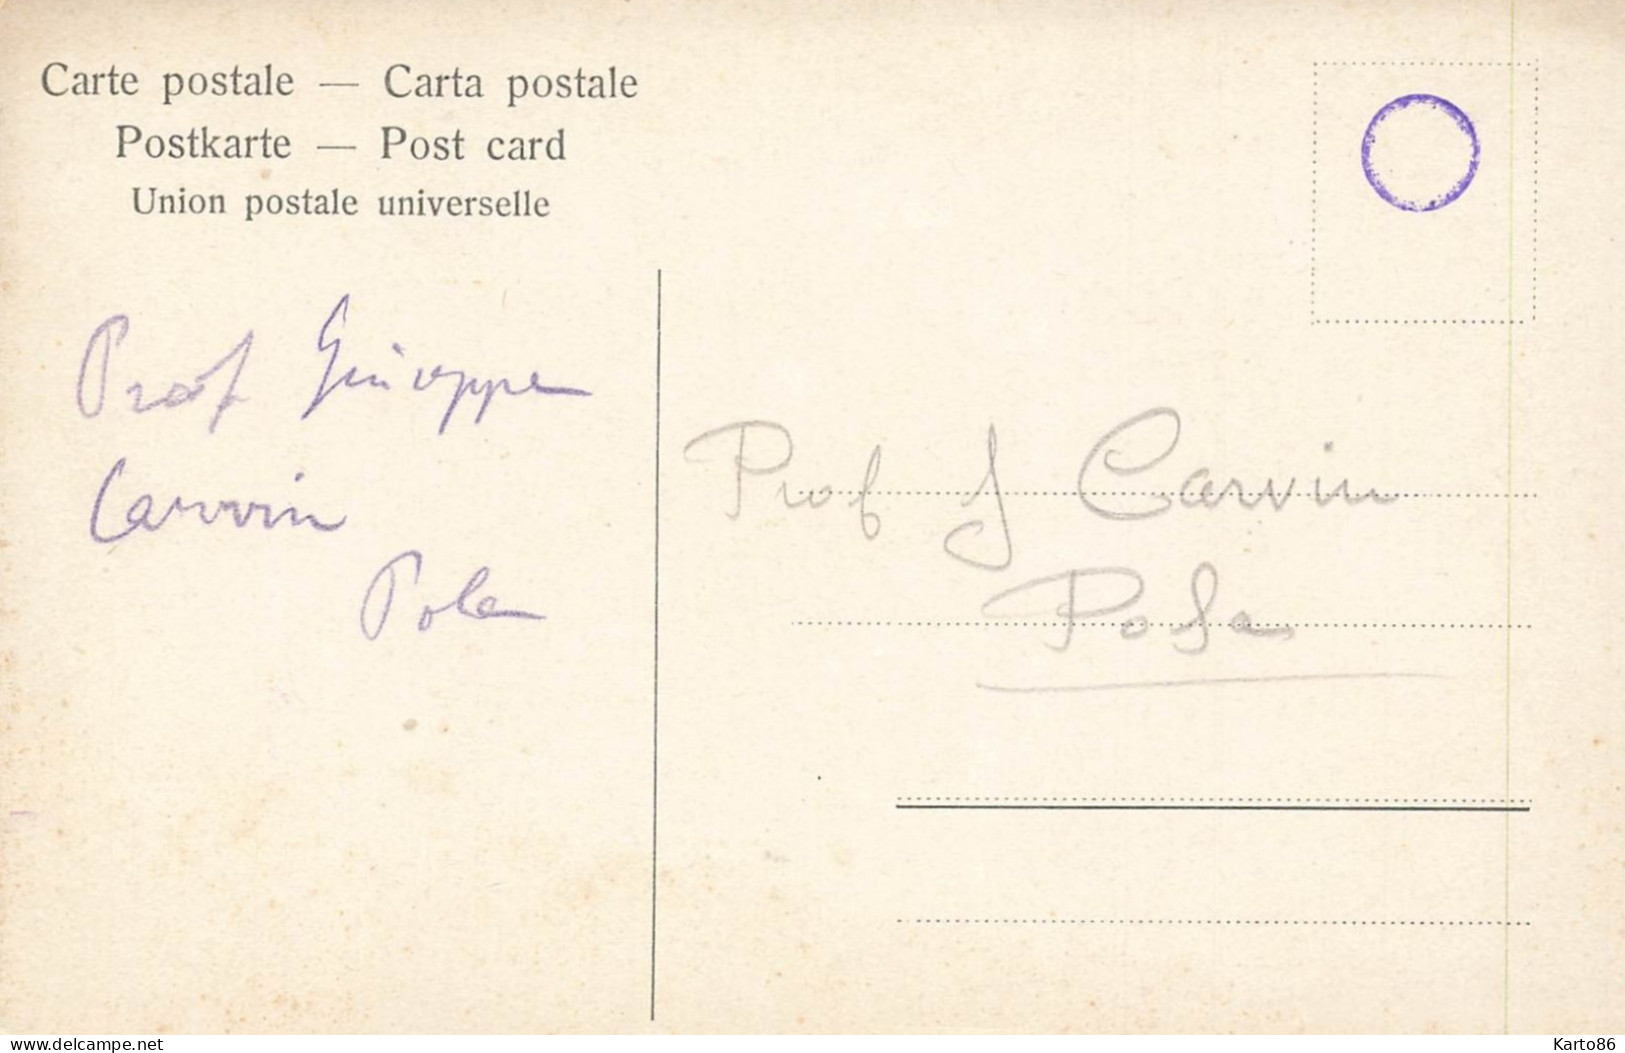 Carte postale — Carta postale
Postkarte — Post card
Union postale universelle
Prof Giuseppe
Carvin
Pola
Prof J Carvin
Pola
www.delcampe.net
Karto86